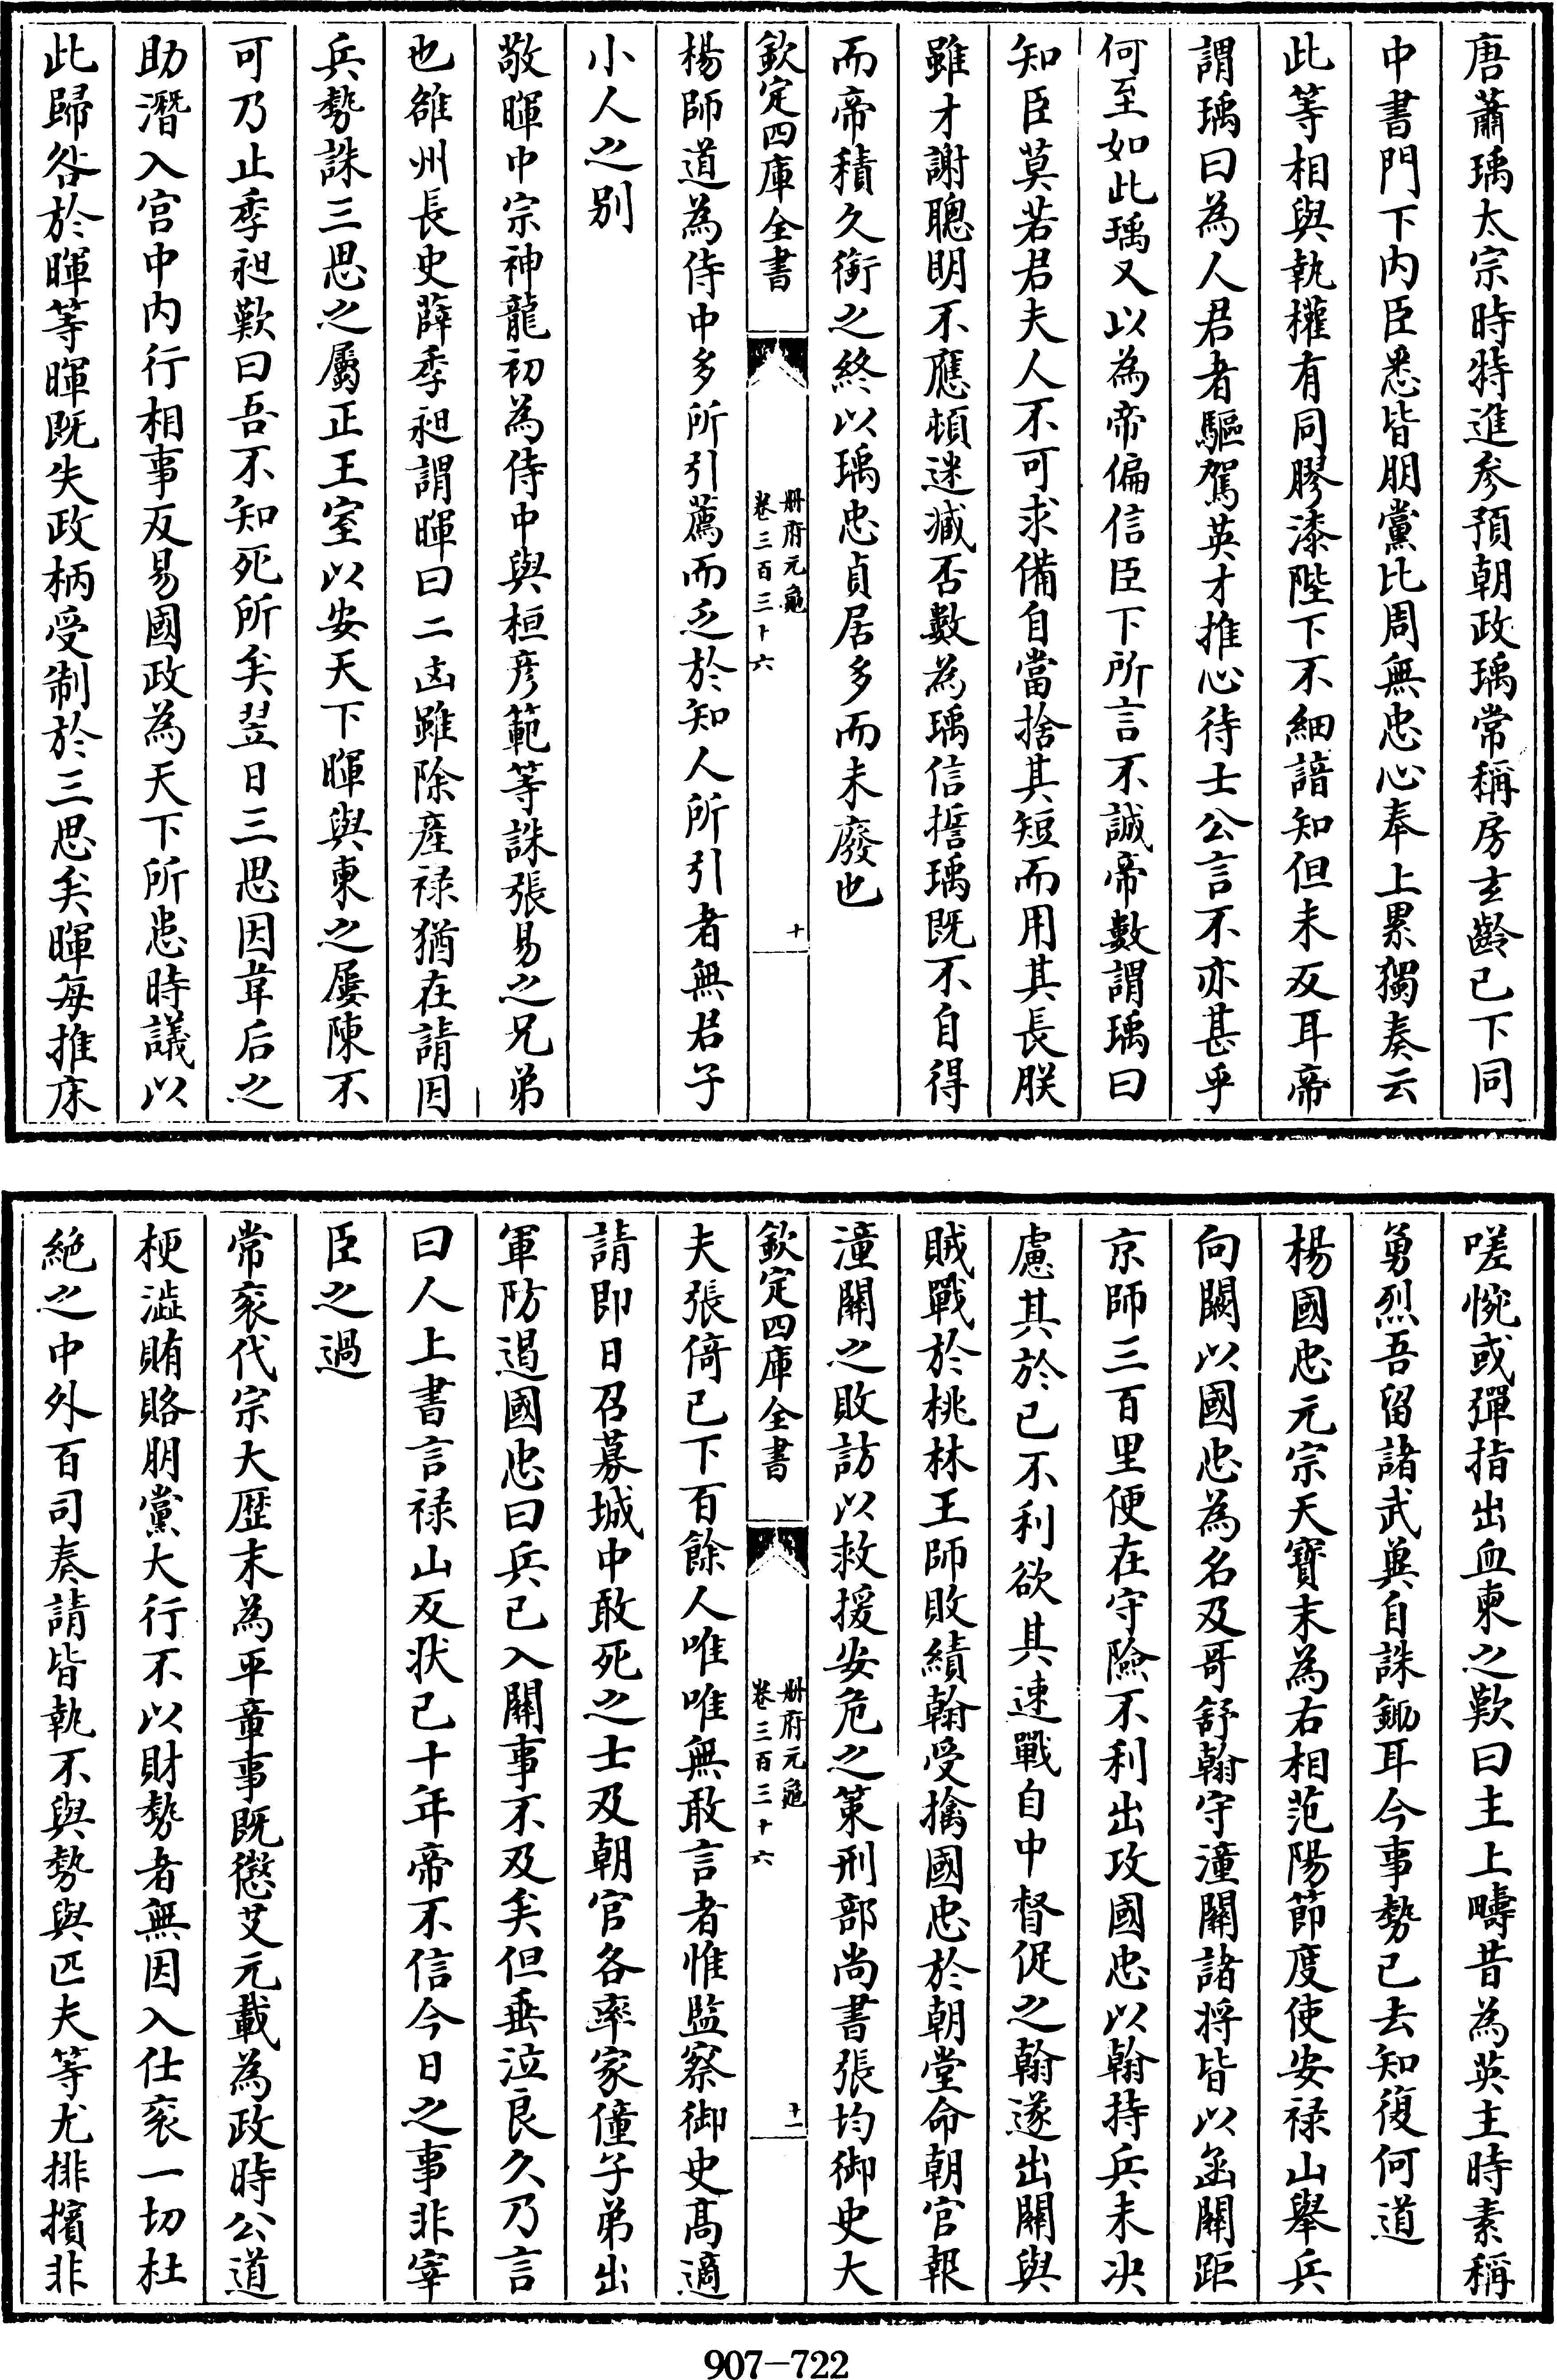 唐蕭瑀太宗時特進參預朝政瑀常稱房玄齡已下同
中書門下内臣悉皆朋黨比周無忠心奉上累獨奏云
此等相與執權有同膠漆陛下不細諳知但未反耳帝
謂瑀曰為人君者驅駕英才推心待士公言不亦甚乎
何至如此瑀又以為帝偏信臣下所言不誠帝數謂瑀曰
知臣莫若君夫人不可求備自當捨其短而用其長朕
雖才謝聰明不應頓迷臧否數為瑀信誓瑀既不自得
而帝積久銜之終以瑀忠貞居多而未廢也
欽定四庫全書
冊府元龜
卷三百三十六
十
楊師道為侍中多所引薦而乏於知人所引者無君子
小人之别
敬暉中宗神龍初為侍中與桓彦範等誅張易之兄弟
也雒州長史薛季昶謂暉曰二凶雖除產禄猶在請因
兵勢誅三思之屬正王室以安天下暉與柬之屢陳不
可乃止季昶歎曰吾不知死所矣翌日三思因韋后之
助潛入宮中内行相事反易國政為天下所患時議以
此歸咎於暉等暉既失政柄受制於三思矣暉每推床
嗟惋或彈指出血柬之歎曰主上疇昔為英主時素稱
勇烈吾留諸武兾自誅鋤耳今事勢已去知復何道
楊國忠元宗天寶末為右相范陽節度使安禄山舉兵
向闕以國忠為名及哥舒翰守潼關諸将皆以函關距
京師三百里便在守險不利出攻國忠以翰持兵未决
慮其於已不利欲其速戰自中督促之翰遂出關與
賊戰於桃林王師敗績翰受擒國忠於朝堂命朝官報
潼關之敗訪以救援安危之策刑部尚書張均御史大
欽定四庫全書
冊府元龜
卷三百三十六
十一
夫張倚已下百餘人唯唯無敢言者惟監察御史髙適
請即日召募城中敢死之士及朝官各率家僮子弟出
軍防遏國忠曰兵已入關事不及矣但垂泣良久乃言
曰人上書言禄山反状已十年帝不信今日之事非宰
臣之過
常衮代宗大歴末為平章事既懲艾元載為政時公道
梗澁賄賂朋黨大行不以財勢者無因入仕衮一切杜
絶之中外百司奏請皆執不與勢與匹夫等尤排擯非
907-722